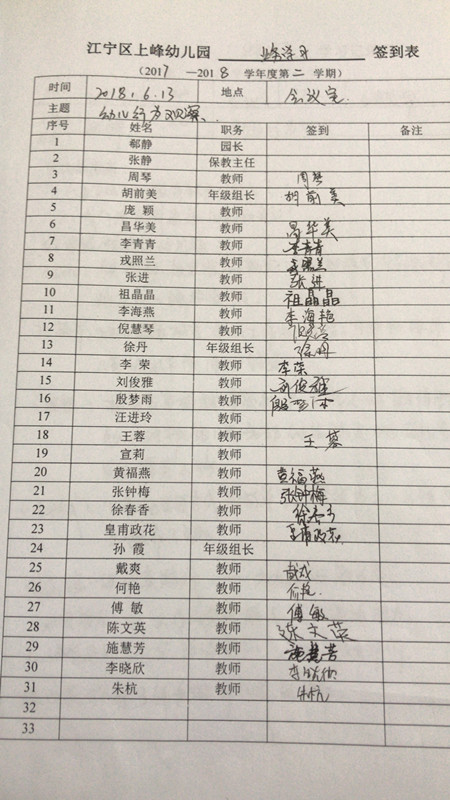 江宁区上峰幼儿园 业务学习 签到表
（2017 —2018 学年度第二 学期）
时间 2018.6.13 地点 会议室
主题 幼儿行为观察、
序号 姓名 职务 签到 备注
1 郗静 园长
2 张静 保教主任
3 周琴 教师 周琴
4 胡前美 年级组长 胡前美
5 庞 颖 教师
6 昌华美 教师 昌华美
7 李青青 教师 李青青
8 戎照兰 教师 戎照兰
9 张进 教师 张进
10 祖晶晶 教师 祖晶晶
11 李海燕 教师 李海艳
12 倪慧琴 教师 倪慧琴
13 徐丹 年级组长 徐丹
14 李 荣 教师 李荣
15 刘俊雅 教师 刘俊雅
16 殷梦雨 教师 殷梦雨
17 汪进玲 教师
18 王蓉 教师 王蓉
19 宣莉 教师
20 黄福燕 教师 黄福燕
21 张钟梅 教师 张钟梅
22 徐春香 教师 徐春香
23 皇甫政花 教师 皇甫政花
24 孙 霞 年级组长
25 戴爽 教师 戴爽
26 何艳 教师 何艳
27 傅 敏 教师 傅敏
28 陈文英 教师 陈文英
29 施慧芳 教师 施慧芳
30 李晓欣 教师 李晓欣
31 朱杭 教师 朱杭
32
33